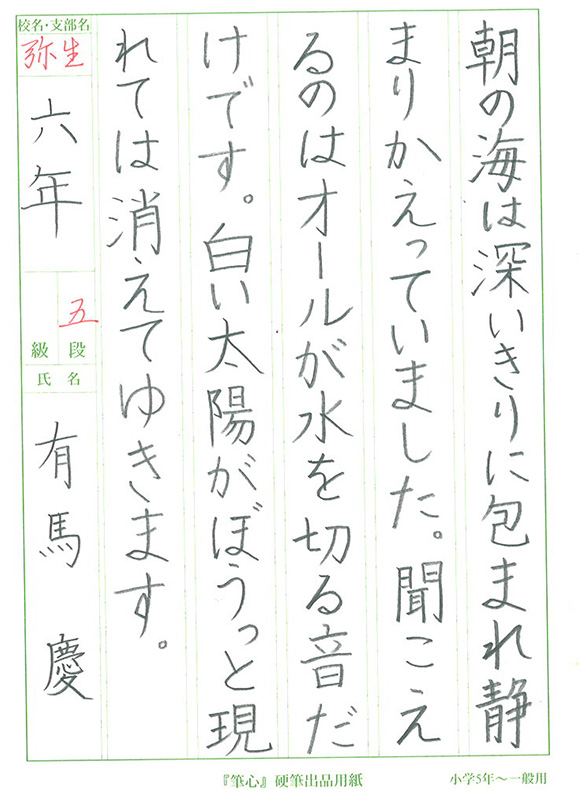 朝の海は深いきりに包まれ静
まりかえっていました。聞こえ
るのはオールが水を切る音だ
けです。白い太陽がぼうっと現
れては消えてゆきます。
校名・支部名
弥生
六年
五
級 段
氏 名
有馬 慶
『筆心』硬筆出品用紙
小学5年〜一般用